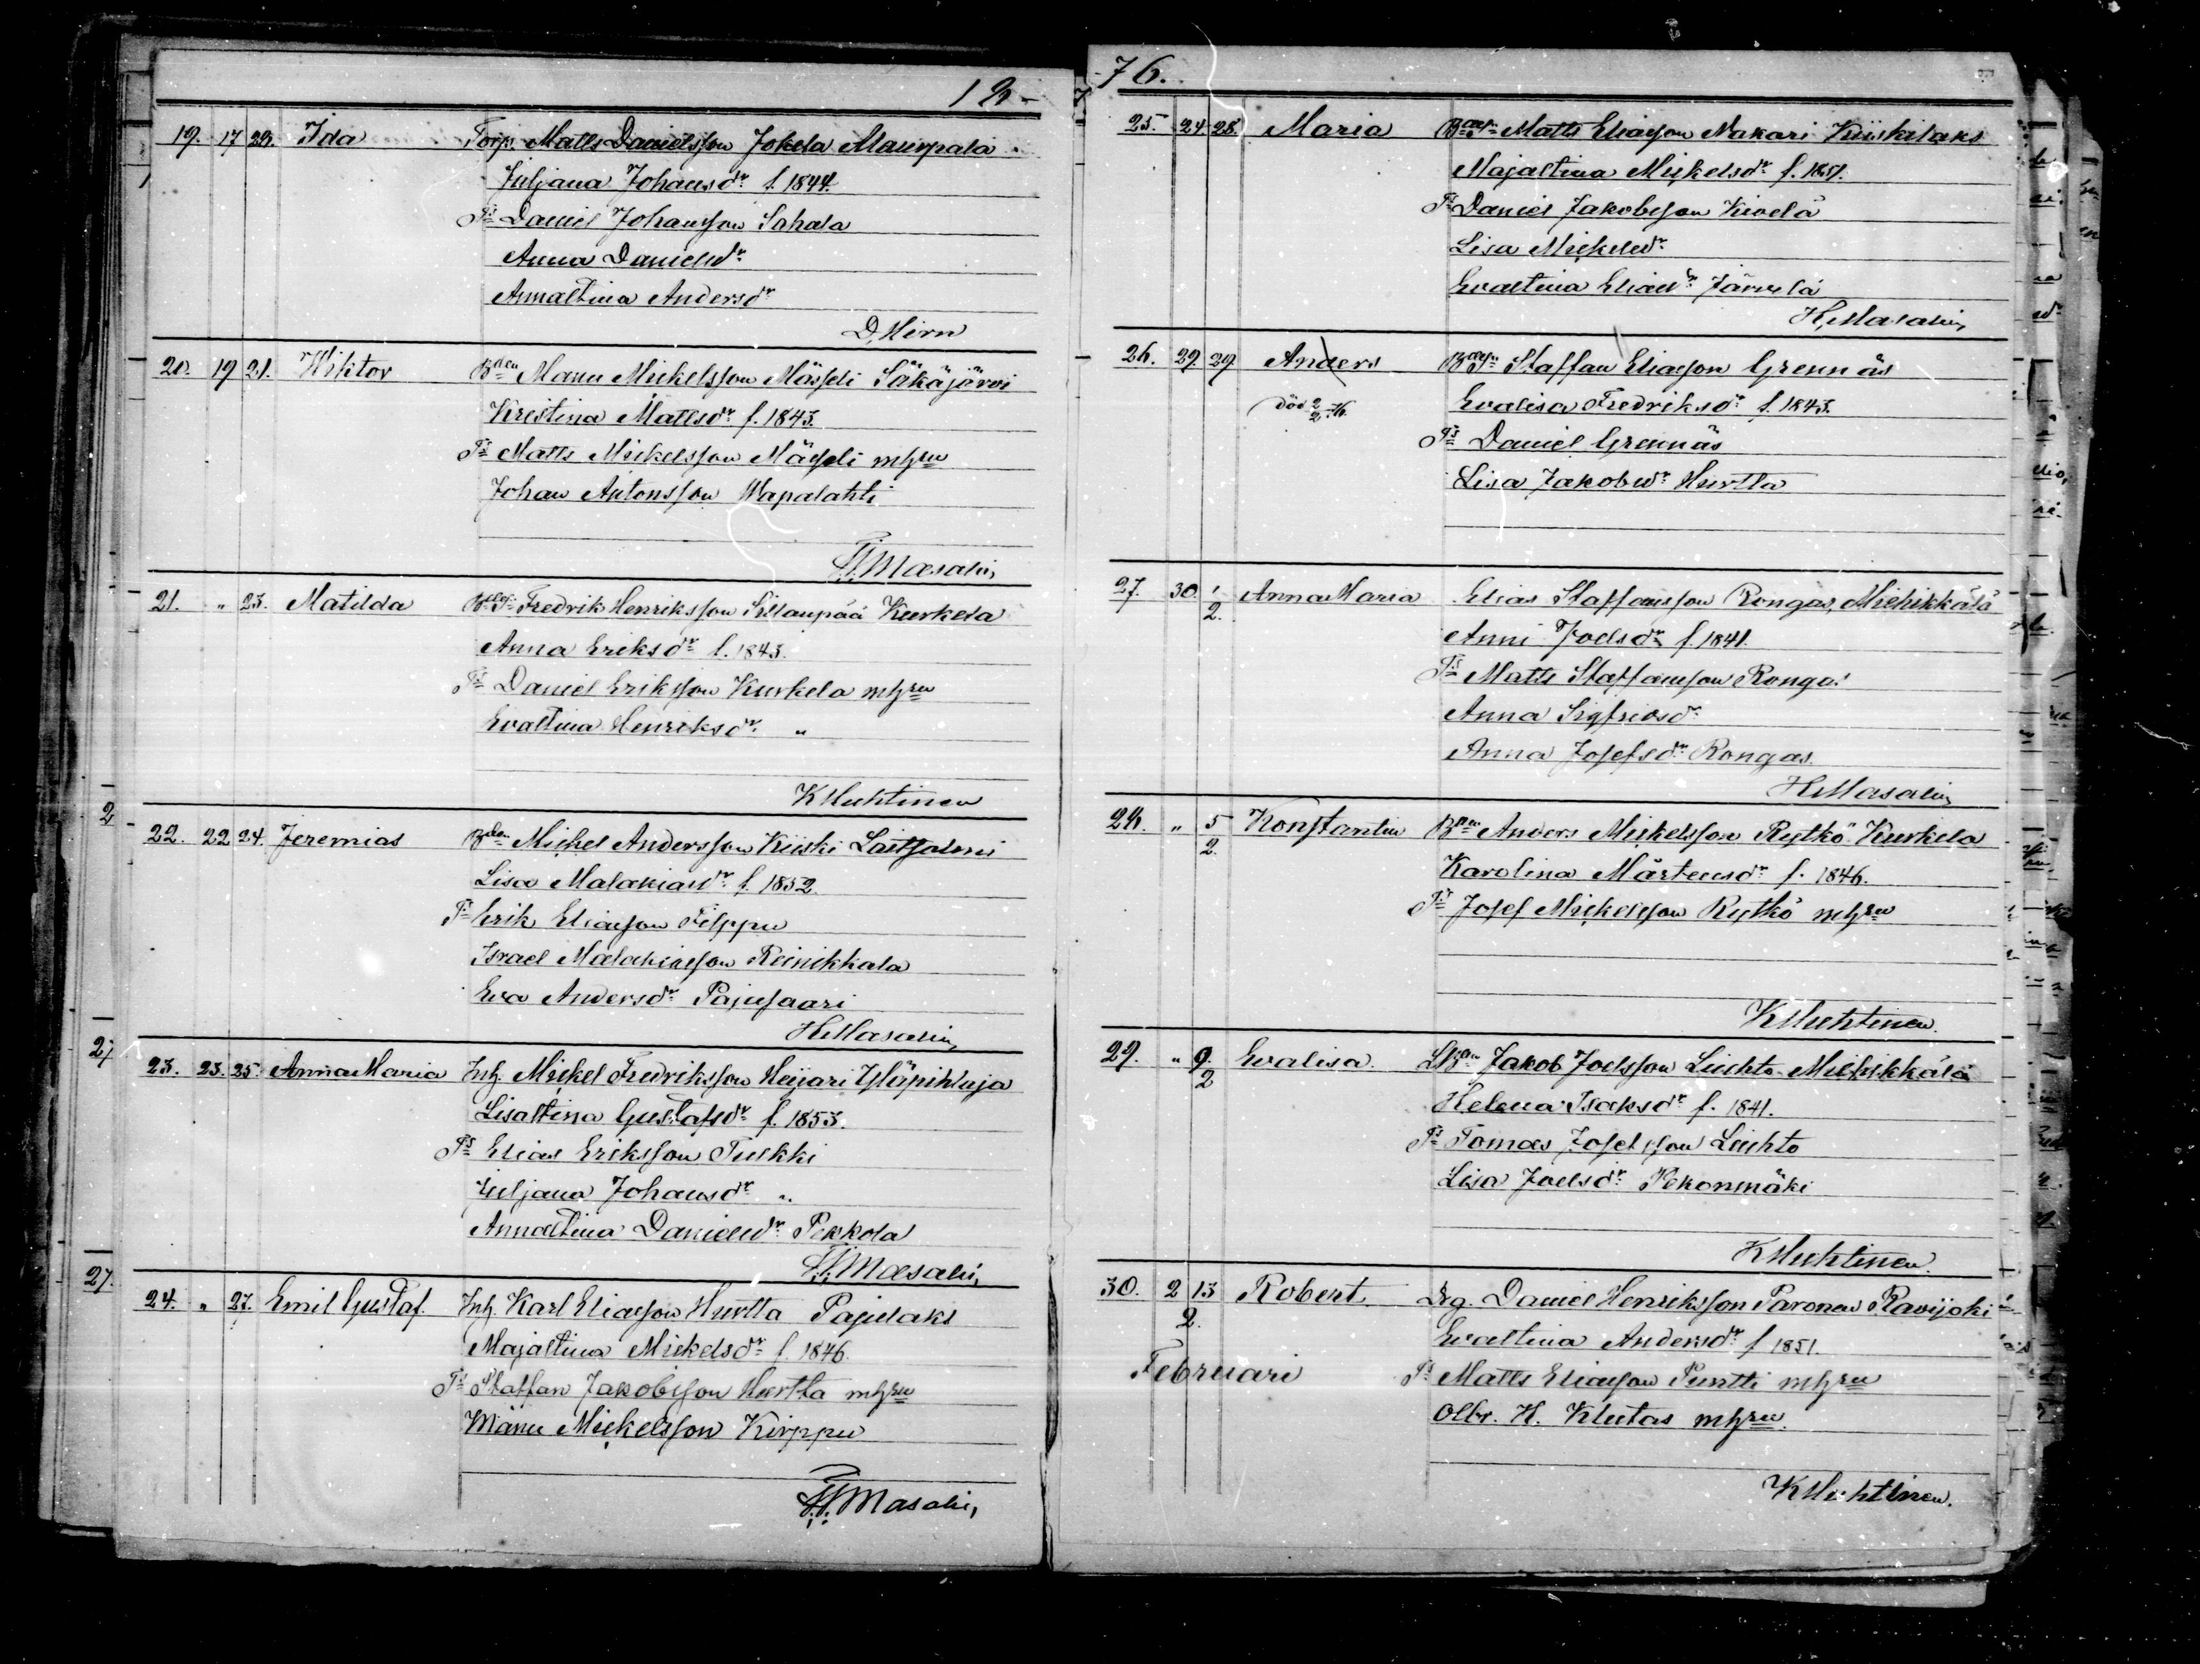 18
19. 17 23. Ida Torp. Matts Danielsson Jokela Maurpala
Juljana Johansdr f. 1844.
Fs Daniel Johansson Sahala
Anna Danielsdr
Annastina Andersdr
D. Hirn
20. 19 21. Wiktor Bden Manu Mickelsson Mässeli Säkäjärvi
Kristina Mattsdr f. 1843.
Fs Matts Mickelsson Mässeli m hru
Johan Antonsson Wapalahti
H. Masalin
21. " 23. Matilda Fredrik Henriksson Sillanpää Kurkela
Anna Eriksdr f. 1843.
Fs Daniel Eriksson Kurkela m hru
Evastina Henriksdr "
K Huhtinen
22. 22 24. Jeremias Bden Mickel Andersson Kiiski Laitsalmi
Lisa Malakiasdr f. 1852.
Fs Erik Eliasson Filppu
Israel Malakiasson Reinikkala
Eva Andersdr Pajusaari
H. Masalin
23. 23. 25. Anna Maria Inh. Mickel Fredriksson Heijari Yläpihlaja
Lisastina Gustafsdr f. 1853.
Fs Elias Eriksson Tuskki
Juljana Johansdr "
Annastina Danielsdr Pekkola
H. Masalin
24. " 27. Emil Gustaf. Inh. Karl Eliasson Hurtta Pajulaks
Majastina Mickelsdr f. 1846.
Fs Staffan Jakobsson Hurtta m hru
Manu Mickelsson Kirppu
H. Masalin
76.
25. 24. 28. Maria Matts Eliasson Nakari Kiiskilaks
Majastina Mickelsdr f. 1851.
Fs Daniel Jakobsson Kivelä
Lisa Mickelsdr
Evastina Eliasdr Järvelä
H. Masalin
26. 29. 29 Anders Staffan Eliasson Grennäs
död 2/2 76 Evalisa Fredriksdr f. 1843.
Fs Daniel Grennäs
Lisa Jakobsdr Hurtta
27. 30. 1/2. Anna Maria Elias Staffansson Rongas, Miehikkälä
Anni Joelsdr f. 1841.
Fs Matts Staffansson Rongas
Anna Sigfridsdr
Anna Josefsdr Rongas.
H Masalin
28. " 5/2. Konstantin Bden Anders Mickelsson Rytkö Kurkela
Karolina Mårtensdr f. 1846.
Fs Josef Mickelsson Rytkö m hru
K Huhtinen.
29. " 9/2 Evalisa. Jakob Joelsson Liuhto Miehikkälä
Helena Isaksdr f. 1841.
Fs Tomas Josefsson Liuhto
Lisa Joelsdr Pekonmäki
K Huhtinen.
30. 2/2. 13 Robert. Drg. Daniel Henriksson Paronen Ravijoki
Evastina Andersdr f 1851.
Februari Fs Matts Eliasson Puntti m hru
Olbr. H. Klutas m hru.
K Huhtinen.